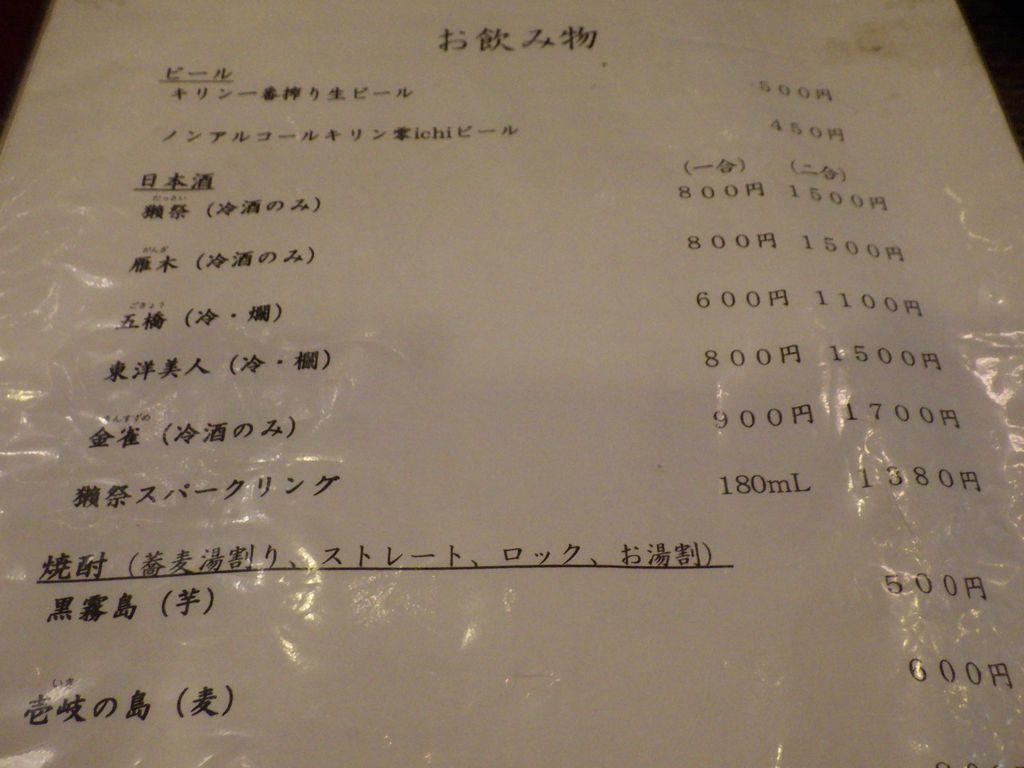 お飲み物
ビール
キリン一番搾り生ビール 500円
ノンアルコールキリン零ichiビール 450円
日本酒 (一合) (二合)
だっさい
獺祭 (冷酒のみ) 800円 1500円
がんぎ
雁木 (冷酒のみ) 800円 1500円
ごきょう
五橋 (冷・燗) 600円 1100円
東洋美人 (冷・燗) 800円 1500円
きんすずめ
金雀 (冷酒のみ) 900円 1700円
獺祭スパークリング 180mL 1380円
焼酎 (蕎麦湯割り、ストレート、ロック、お湯割)
黒霧島 (芋) 500円
いき
壱岐の島 (麦) 600円